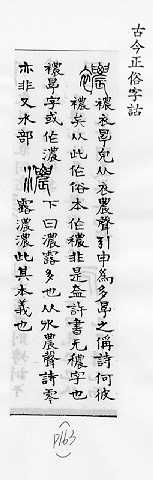 古今正俗字詁
襛 襛衣厚皃从衣農聲引申為多厚之偁詩何彼
襛矣从此作俗本作穠非是盖許書无穠字也
襛厚字或作濃
亦非又水部
濃
下曰濃露多也从水農聲詩零
露濃濃此其本義也
p163